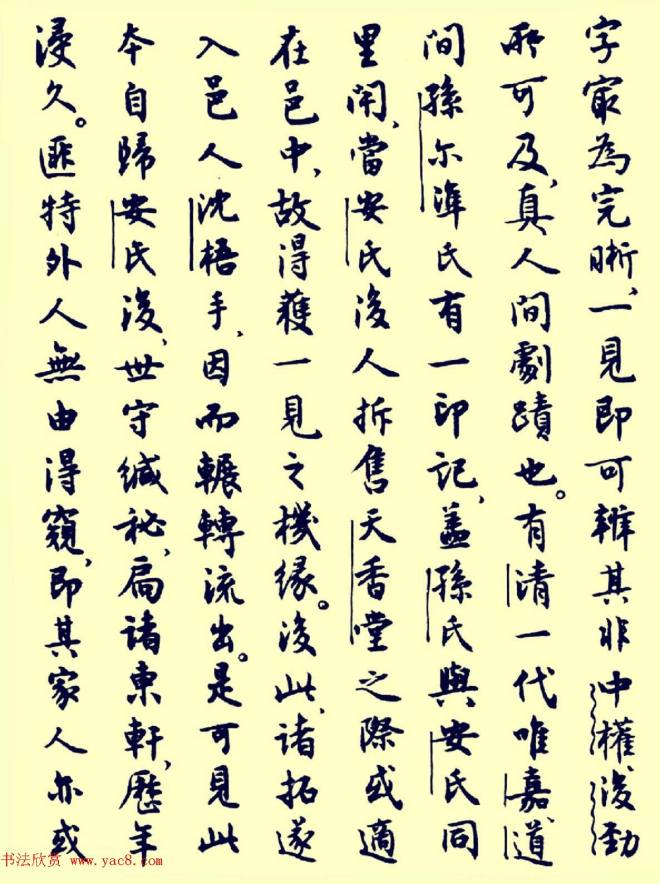 字最為完晰、一見即可辨其非中權、後勁
所可及、真人間劇蹟也。有清一代唯嘉、道
間孫尔準氏有一印記、蓋孫氏與安氏同
里閈、當安氏後人拆售天香堂之際或適
在邑中、故得獲一見之機緣。後此、諸拓遂
入邑人沈梧手、因而輾轉流出。是可見此
本自歸安氏後、世守緘秘、扃諸東軒、歷年
浸久。匪特外人無由得窺、即其家人亦或
书法欣赏 www.yac8.com